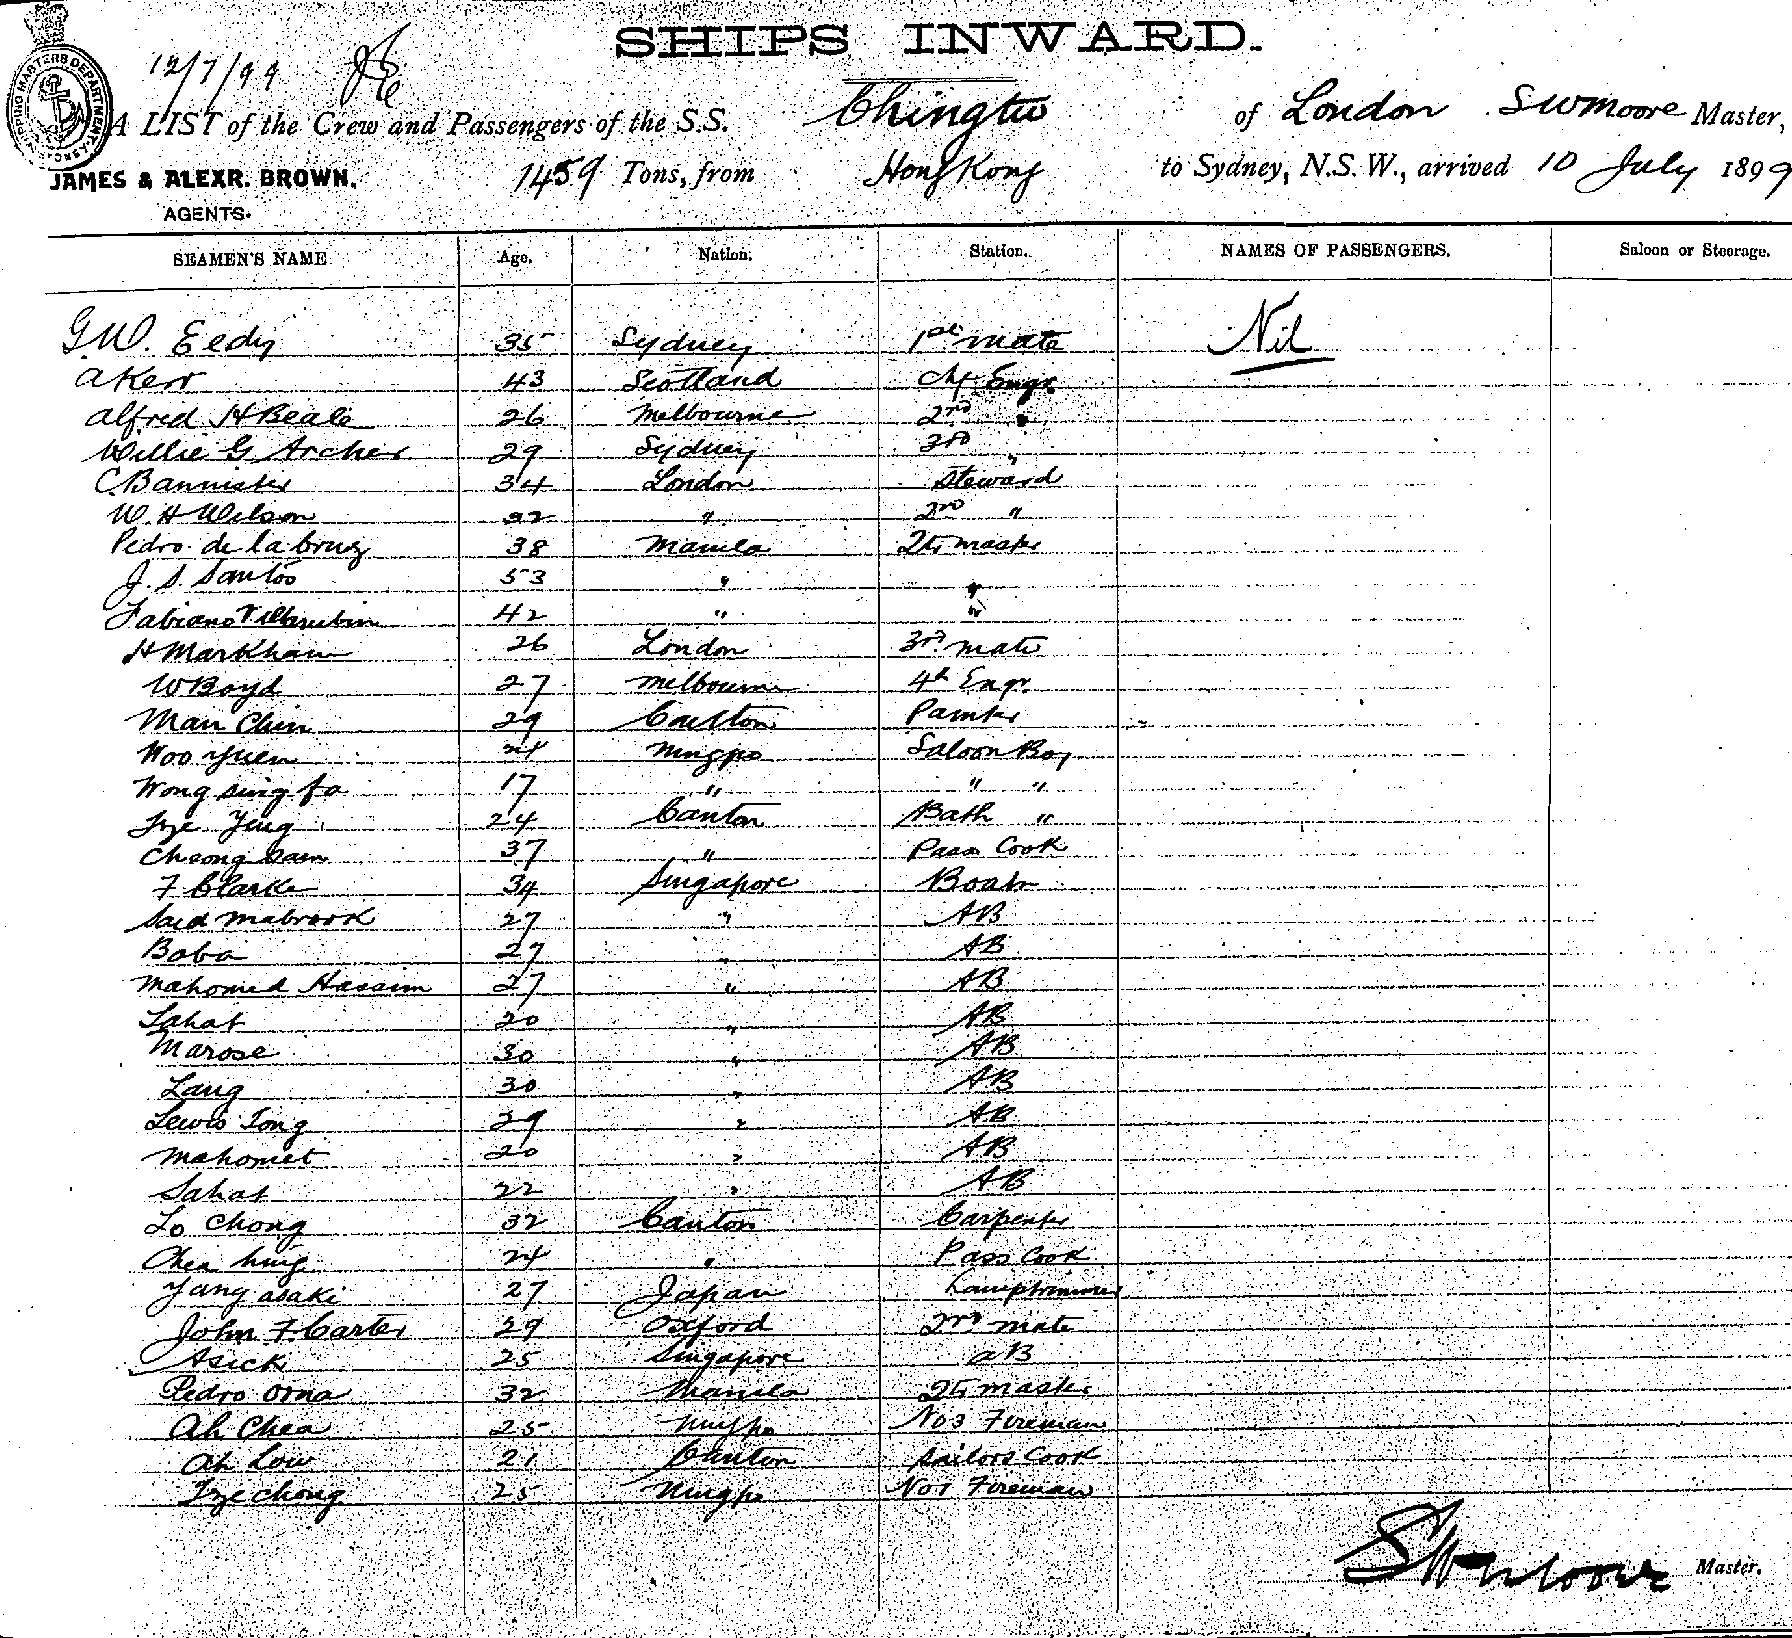 SHIPS INWARD.
12/7/99
SHIPPING MASTERS DEPARTMENT
A LIST of the Crew and Passengers of the S.S. Chingtu of London SWMoore Master,
JAMES & ALEXR. BROWN. 1459 Tons, from Hong Kong to Sydney, N.S.W., arrived 10 July 1899
AGENTS.
SEAMEN'S NAME Age. Nation. Station. NAMES OF PASSENGERS. Saloon or Steerage.
G.W. Eedy 35 Sydney 1st mate Nil
A Kerr 43 Scotland Chf Engr
Alfred H Beale 26 Melbourne 2nd "
Willie G Archer 29 Sydney 3rd "
C. Bannister 34 London Steward
W. H Wilson 32 " 2nd "
Pedro de la Cruz 38 Manila Qtr master
J. S. Santos 53 " "
Fabiano 42 " "
H Markham 26 London 3rd mate
W Boyd 27 Melbourne 4th Engr.
Man Chun 29 Canton Painter
Woo Yuen 24 Ningpo Saloon Boy
Wong Sing fa 17 " " "
Tze Ying 24 Canton Bath "
Cheong Sam 37 " Pass Cook
F Clarke 34 Singapore Boatn
Said Mabrook 27 " AB
Baba 27 " AB
Mahomed Hassim 27 " AB
Sahat 20 " AB
Marose 30 " AB
Lang 30 " AB
Lewis Tong 29 " AB
Mahomet 20 " AB
Sahat 22 " AB
Lo Chong 32 Canton Carpenter
Chea hing 24 " Pass Cook
Yang asaki 27 Japan Lamptrimmer
John F. Carter 29 Oxford 2nd mate
Asick 25 Singapore AB
Pedro Orna 32 Manila Qtr master
Ah Chea 25 Ningpo No 3 Fireman
Ah Low 21 Canton Sailors Cook
Tze chong 25 Ningpo No 1 Fireman
SWMoore Master.